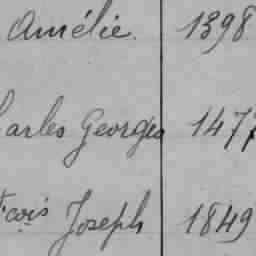 Amélie. 1398
harles Georges 1477
fçois Joseph 1849